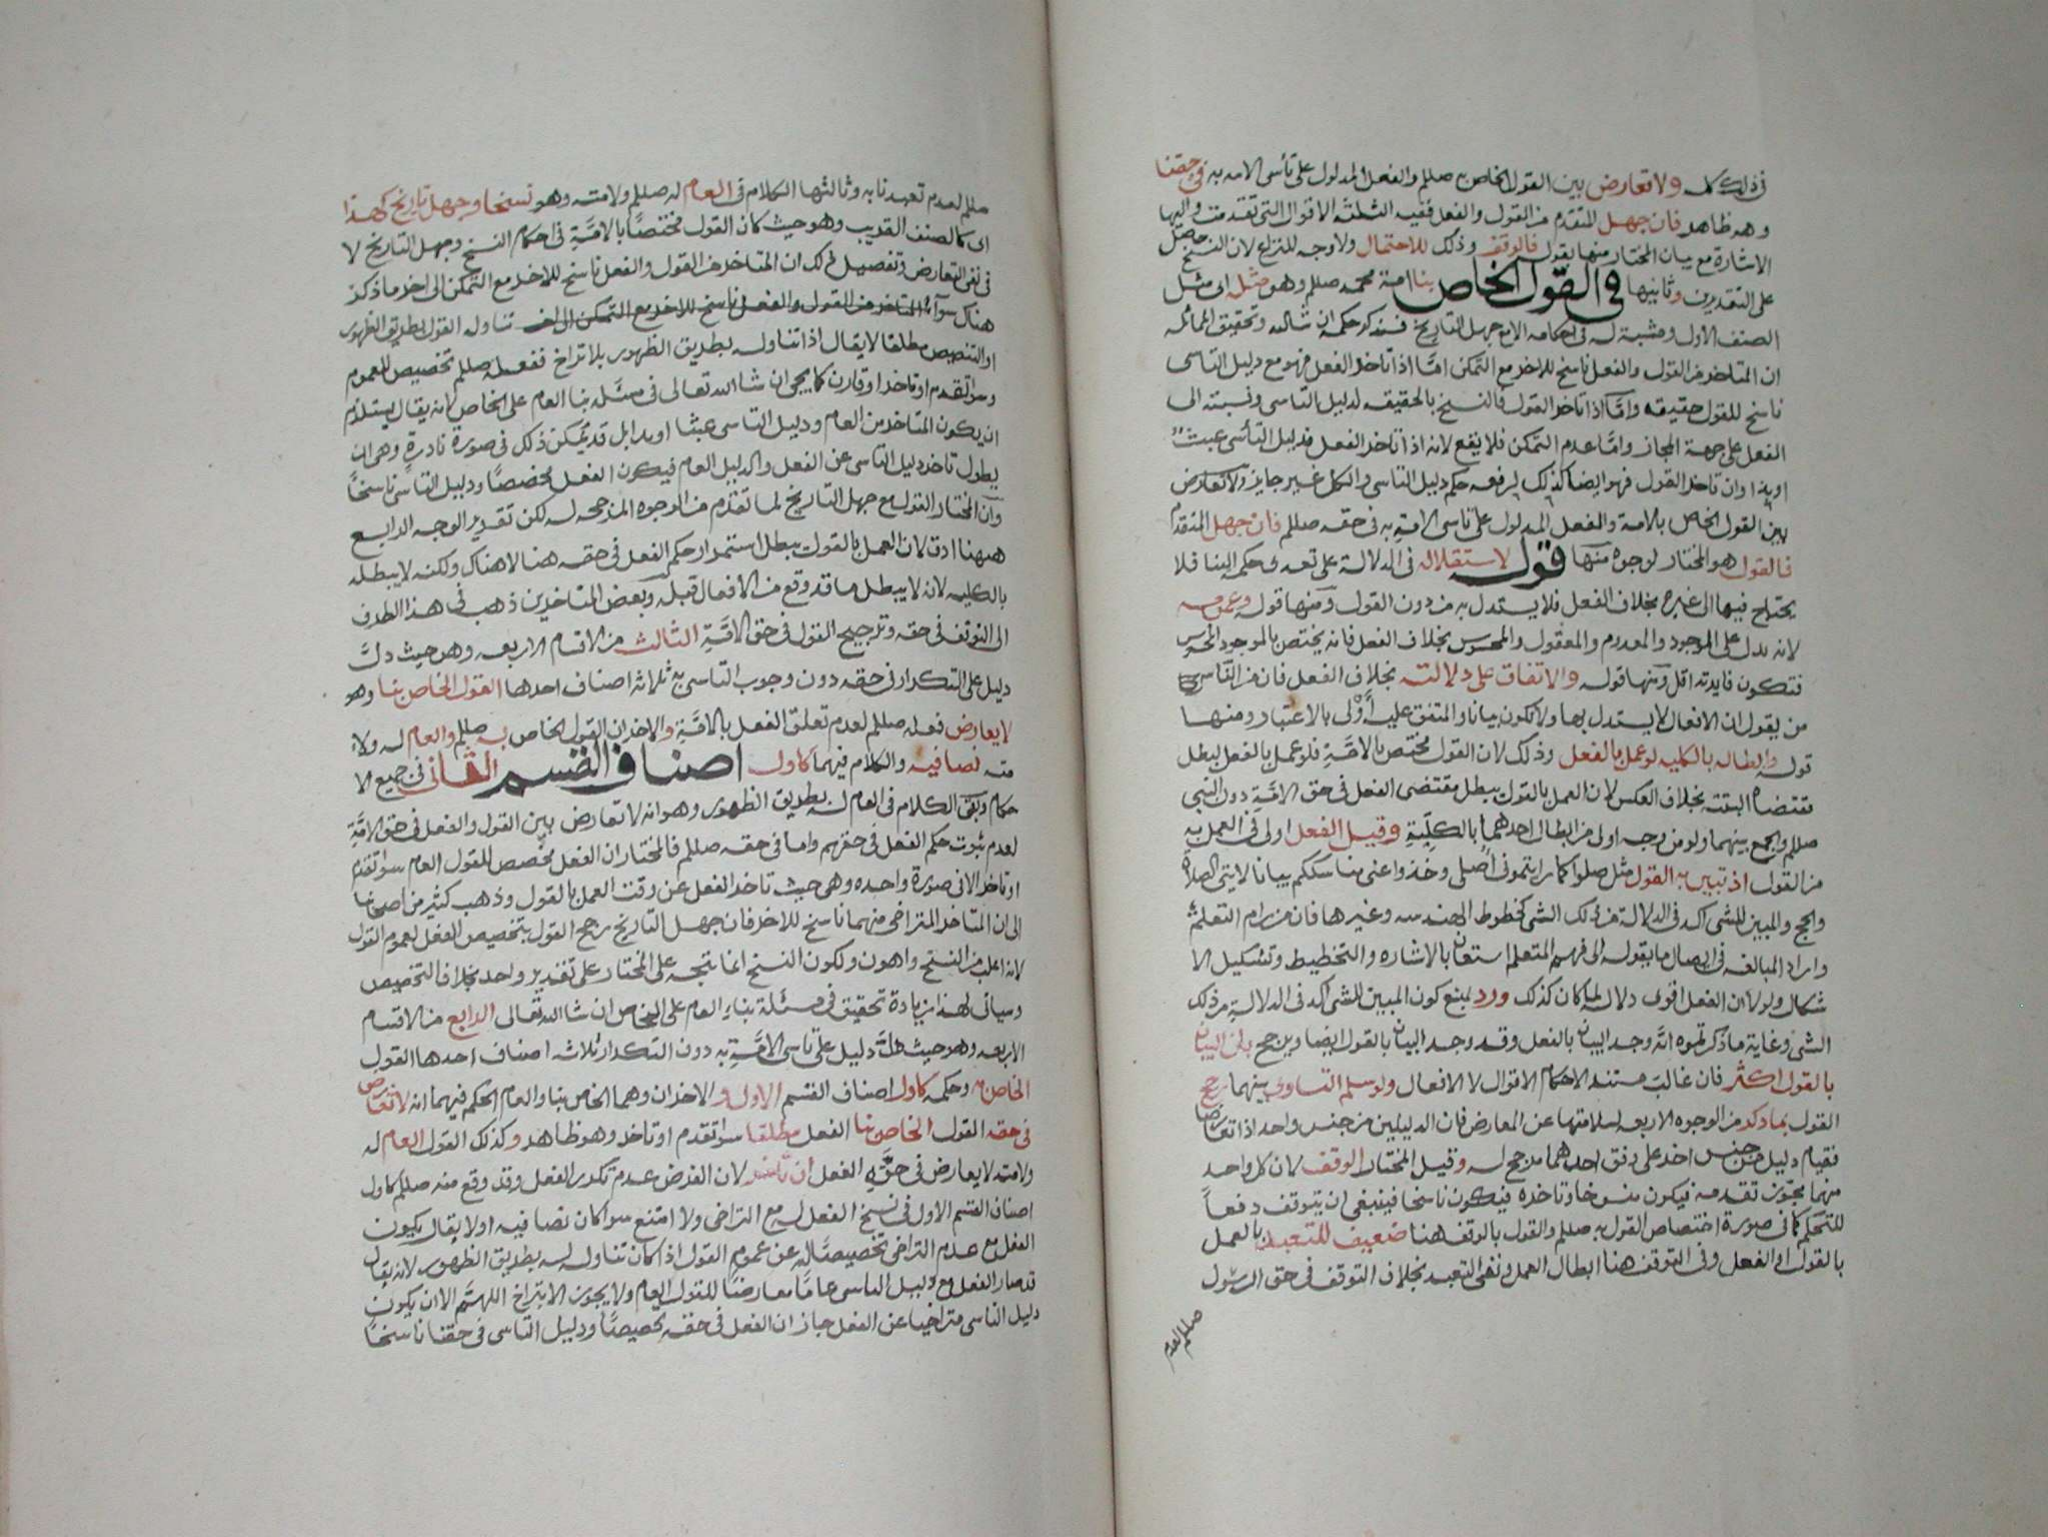 في ذلك كله ولا تعارض بين القول الخاص به صللم والفعل المدلول على تأسى الامه به في حقنا
وهو ظاهر فان جهل المتقدم من القول والفعل ففيه الثلثة الاقوال التي تقدمت واليها
الاشارة مع بيان المختار منها بقوله فالوقف وذلك للاحتمال ولا وجه للنزاع لان النسخ حصل
على التقديرين وثانيها في القول الخاص بنا امة محمد صللم وهو مثله اى مثل
الصنف الاول ومشبة له في احكامه الا مع جهل التاريخ فسنذكر حكمه ان شا الله وتحقيق المماثله
ان المتاخر من القول والفعل ناسخ للاخر مع التمكن امّا اذا تاخر الفعل فهو مع دليل التاسى
ناسخ للقول حقيقه وامّا اذا تاخر القول فالنسخ بالحقيقه لدليل التاسى ونسبته الى
الفعل على جهة المجاز وامّا عدم التمكن فلا يقع لانه اذا تاخر الفعل فدليل التأسى عبث
او بدا وان تاخر القول فهو ايضا كذلك لرفعه حكم دليل التاسى والكل غير جايز ولا تعارض
بين القول الخاص بالامة والفعل المدلول على تاسى الامة به في حقه صللم فان جهل المتقدم
فالقول هو المختار لوجوه منها قوله لاستقلاله في الدلالة على تعدد حكمه الينا فلا
يحتاج فيها الى غيره بخلاف الفعل فلا يستدل به من دون القول ومنها قوله وعمومه
لانه يدل على الموجود والمعدوم والمعقول والمحسوس بخلاف الفعل فانه يختص بالموجود المحسوس
فتكون فايدته اقل ومنها قوله والاتفاق على دلالته بخلاف الفعل فان من الناس
من يقول ان الافعال لا يستدل بها ولا تكون بيانا والمتفق عليه أولى بالاعتبار ومنها
قوله وابطاله بالكليه لو عمل بالفعل وذلك لان القول مختص بالامّة فلو عمل بالفعل لبطل
مقتضاه البتته بخلاف العكس لان العمل بالقول يبطل مقتضى الفعل في حق الامّة دون النبي
صللم والجمع بينهما ولو من وجه اولى من ابطال احدهما بالكلّية وقيل الفعل اولى في العمل به
من القول اذ تبيين به القول مثل صلوا كما رايتموني أصلي وخذوا عنى مناسككم بيانا لايتى الصلاة
والحج والمبين للشى اكد في الدلالة من ذلك الشى كخطوط الهندسه وغيرها فان من رام التعليم
واراد المبالغه في ايصال ما يقوله الى فهم المتعلم استعان بالاشاره والتخطيط وتشكيل الا
شكال ولولا ان الفعل اقوى دلالة لما كان كذلك ورد بمنع كون المبين للشى اكد في الدلالة من ذلك
الشى وغاية ما ذكرتموه انّه وجد البيان بالفعل وقد وجد البيان بالقول ايضا ويرجح بان البيان
بالقول اكثر فان غالب مستند الاحكام الاقوال لا الافعال ولو سلم التساوى بينهما رجح
القول بما ذكر من الوجوه الاربعه لسلامتها عن المعارض فان الدليلين من جنس واحد اذا تعارضا
فقيام دليل من جنس اخر على وفق احدهما مرجح له وقيل المختار الوقف لان كل واحد
منهما مجوّز تقدمه فيكون منسوخا وتاخره فيكون ناسخا فينبغى ان يتوقف دفعاً
للتحكم كما في صورة اختصاص القول به صللم والقول بالوقف هنا ضعيف للتعبد بالعمل
بالقول او الفعل وفى التوقف هنا ابطال العمل ونفى التعبد بخلاف التوقف في حق الرسول
صللم لعدم
صللم لعدم تعبدنا به وثالثها الكلام في العام له صللم ولامته وهو نسخا وجهل تاريخ كهذا
اى كالصنف القريب وهو حيث كان القول مختصًّا بالامّةِ في احكام النسخ وجهل التاريخ لا
في نفى التعارض وتفصيل ذلك ان المتاخر من القول والفعل ناسخ للاخر مع التمكن الى اخر ما ذكر
هناك سوآء المتاخر من القول والفعل ناسخ للاخر مع التمكن الى اخر تناوله القول بطريق الظهور
او التنصيص مطلقا لا يقال اذا تناوله بطريق الظهور بلا تراخ ففعله صللم تخصيص للعموم
وسوا تقدم او تاخر او قارن كما يجى ان شا الله تعالى في مسئله بنا العام على الخاص لانه يقال يستلزم
ان يكون المتاخر من العام ودليل التاسى عبثا او بدا بل قد يمكن ذلك في صورة نادرة وهى ان
يطول تاخر دليل التاسى عن الفعل والدليل العام فيكون الفعل مخصصًا ودليل التاسى ناسخًا
وان المختار القول مع جهل التاريخ لما تقدم من الوجوه المرجحه له لكن تقدير الوجه الرابع
ههنا ادق لان العمل بالقول يبطل استمرار حكم الفعل في حقه هنا لا هناك ولكنه لا يبطله
بالكليه لانه لا يبطل ما قد وقع من الافعال قبله وبعض المتاخرين ذهب في هذا الطرف
الى التوقف في حقه وترجيح القول في حق الامّةِ الثالث من الاقسام الاربعه وهو حيث دلّ
دليل على التكرار في حقه دون وجوب التاسى به ثلاثه اصناف احدها القول الخاص بنا وهو
لا يعارض فعله صللم لعدم تعلق الفعل بالامّةِ والاخران القول الخاص به صللم والعام له ولاء
مته نصا فيه والكلام فيهما كاول اصناف القسم الثاني في جميع الا
حكام وبقى الكلام في العام له بطريق الظهور وهو انه لا تعارض بين القول والفعل في حق الامّةِ
لعدم ثبوت حكم الفعل في حقهم واما في حقه صللم فالمختار ان الفعل مخصص للقول العام سوا تقدم
او تاخر الا في صورة واحده وهى حيث تاخر الفعل عن وقت العمل بالقول وذهب كثير من اصحابنا
الى ان المتاخر المتراخى منهما ناسخ للاخر فان جهل التاريخ رجح القول بتخصيص الفعل لعموم القول
لانه اغلب من النسخ واهون ولكون النسخ انما يتجه على المختار على تقدير واحد بخلاف التخصيص
وسياتى لهذا زيادة تحقيق في مسئلة بناء العام على الخاص ان شا الله تعالى الرابع من الاقسام
الاربعه وهو حيث دلّ دليل على تاسى الامّةِ به دون التكرار ثلاثه اصناف احدها القول
الخاص به وحكمه كاول اصناف القسم الاول و الاخران وهما الخاص بنا والعام الحكم فيهما انه لا تعارض
في حقه القول الخاص بنا الفعل مطلقا سوا تقدم او تاخر وهو ظاهر وكذلك القول العام له
ولامته لا يعارض في حقّه الفعل ان تاخر لان الفرض عدم تكرر الفعل وقد وقع منه صللم كاول
اصناف القسم الاول في نسخ الفعل له مع التراخى ولا امتنع سوا كان نصا فيه او لا يقال يكون
الفعل مع عدم التراخى تخصيصًا له عن عموم القول اذا كان تناوله له بطريق الظهور لانه يقال
قد صار الفعل مع دليل التاسى عامًّا معارضًا للقول العام ولا يجوز الا بتراخ اللهمّ الا ان يكون
دليل التاسى متراخيا عن الفعل جاز ان الفعل في حقه تخصيصًا ودليل التاسى في حقنا ناسخًا